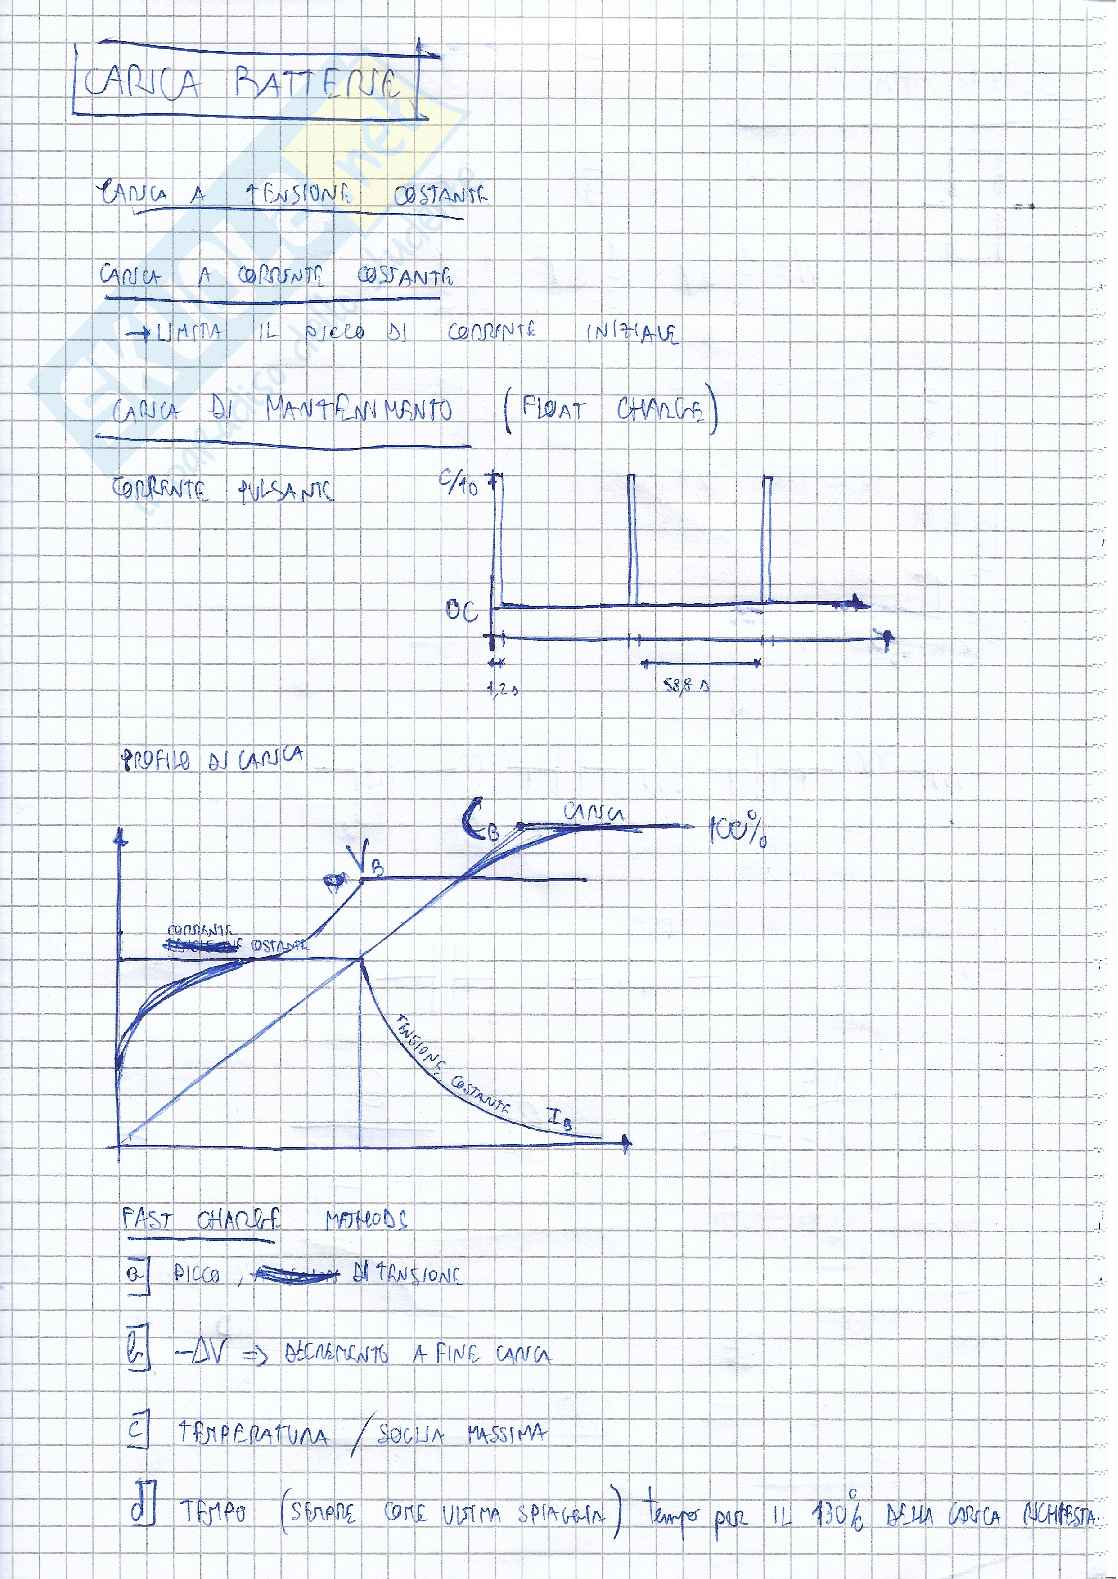 CARICA BATTERIE
CARICA A TENSIONE COSTANTE
CARICA A CORRENTE COSTANTE
→ LIMITA IL PICCO DI CORRENTE INIZIALE
CARICA DI MANTENIMENTO (FLOAT CHARGE)
CORRENTE PULSANTE
C/10
0C
1,2 s
58,8 s
PROFILO DI CARICA
CB
CARICA
100%
VB
CORRENTE
COSTANTE
TENSIONE COSTANTE
IB
FAST CHARGE METHODS
a] PICCO, DI TENSIONE
b] -ΔV => DECREMENTO A FINE CARICA
c] TEMPERATURA / SOGLIA MASSIMA
d] TEMPO (SEMPRE COME ULTIMA SPIAGGIA) tempo per IL 130% DELLA CARICA RICHIESTA.
EKUOLE.net
il paradiso dello studente